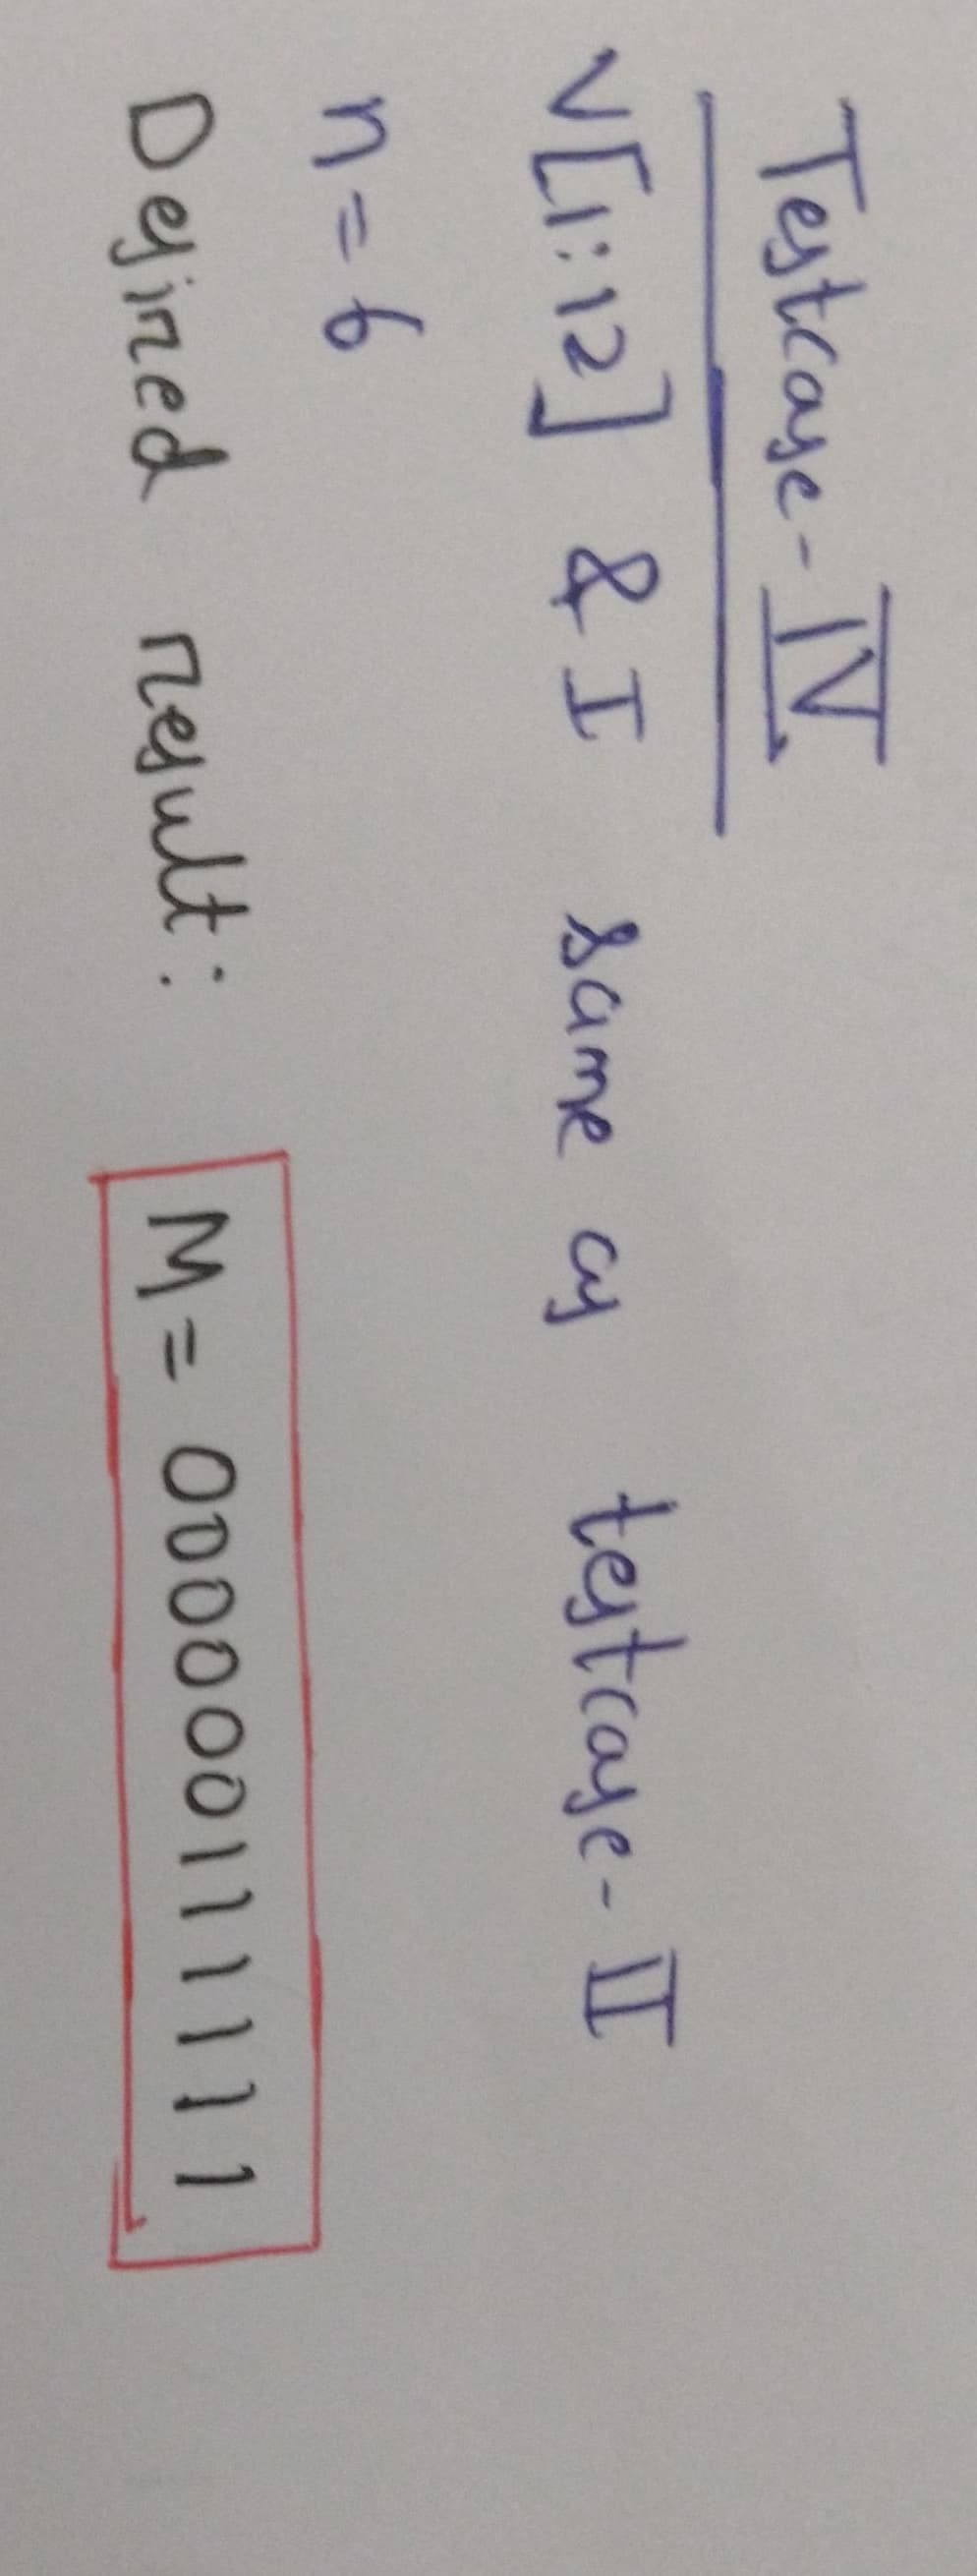 Testcase-IV
V[1:12] & I same as testcase-II
n=6
Desired result: M= 000000111111